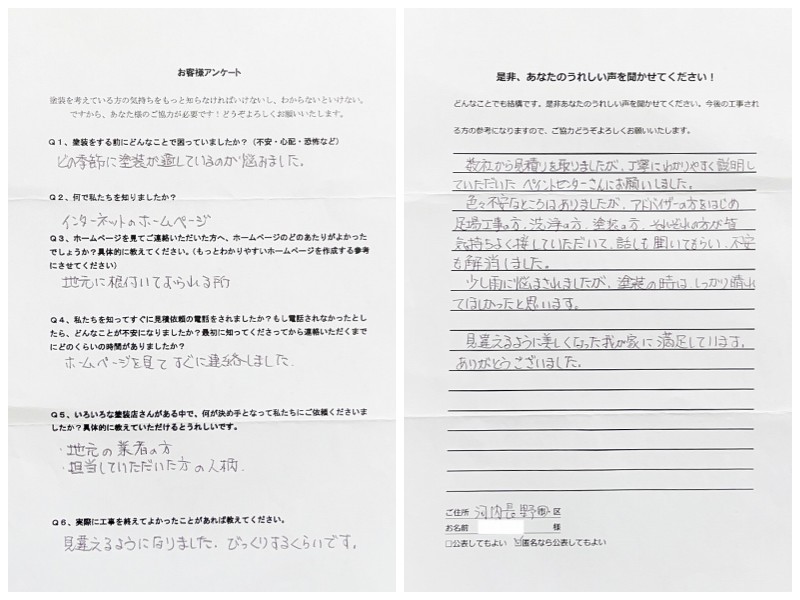 お客様アンケート
塗装を考えている方の気持ちをもっと知らなければいけないし、わからないといけない。
ですから、あなた様のご協力が必要です！どうぞよろしくお願いいたします。
Q１、塗装をする前にどんなことで困っていましたか？（不安・心配・恐怖など）
どの季節に塗装が適しているのか悩みました。
Q２、何で私たちを知りましたか？
インターネットのホームページ
Q３、ホームページを見てご連絡いただいた方へ、ホームページのどのあたりがよかった
でしょうか？具体的に教えてください。（もっとわかりやすいホームページを作成する参考
にさせてください）
地元に根付いておられる所
Q４、私たちを知ってすぐに見積依頼の電話をされましたか？もし電話されなかったとし
たら、どんなことが不安になりましたか？最初に知ってくださってから連絡いただくまで
にどのくらいの時間がありましたか？
ホームページを見てすぐに連絡しました．
Q５、いろいろな塗装店さんがある中で、何が決め手となって私たちにご依頼くださいま
したか？具体的に教えていただけるとうれしいです。
・地元の業者の方
・担当していただいた方の人柄．
Q６、実際に工事を終えてよかったことがあれば教えてください。
見違えるようになりました．びっくりするくらいです。
是非、あなたのうれしい声を聞かせてください！
どんなことでも結構です。是非あなたのうれしい声を聞かせてください。今後の工事され
る方の参考になりますので、ご協力どうぞよろしくお願いいたします。
数社から見積りを取りましたが、丁寧にわかりやすく説明し
ていただいた ペイントセンターさんにお願いしました。
色々不安なところはありましたが、アドバイザーの方をはじめ
足場工事の方、洗浄の方、塗装の方、それぞれの方が皆
気持ちよく接していただいて、話しも聞いてもらい、不安
も解消しました。
少し雨に悩まされましたが、塗装の時は、しっかり晴れ
てほしかったと思います。
見違えるように美しくなった我が家に満足しています。
ありがとうございました。
ご住所 河内長野市区
お名前 様
□公表してもよい ☑匿名なら公表してもよい